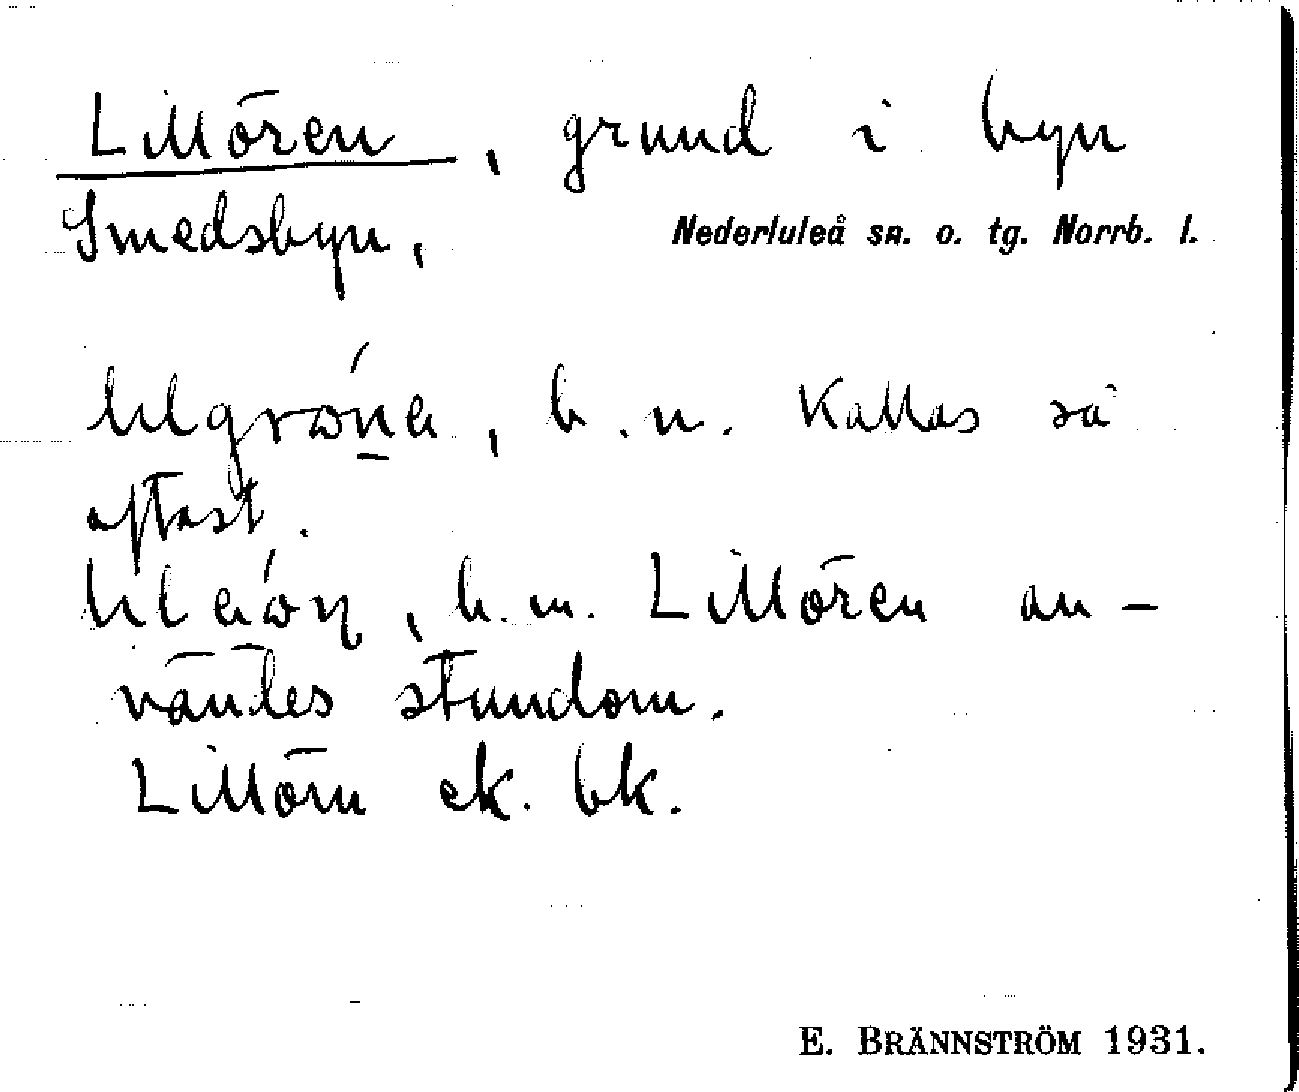 Lillören, grund i byn
Smedsbyn,
Nederluleå sn. o. tg. Norrb. l.
b. n. Kallas så
oftast.
b. m. Lillören an-
vändes stundom.
Lillörn ek. bk.
E. BRÄNNSTRÖM 1931.